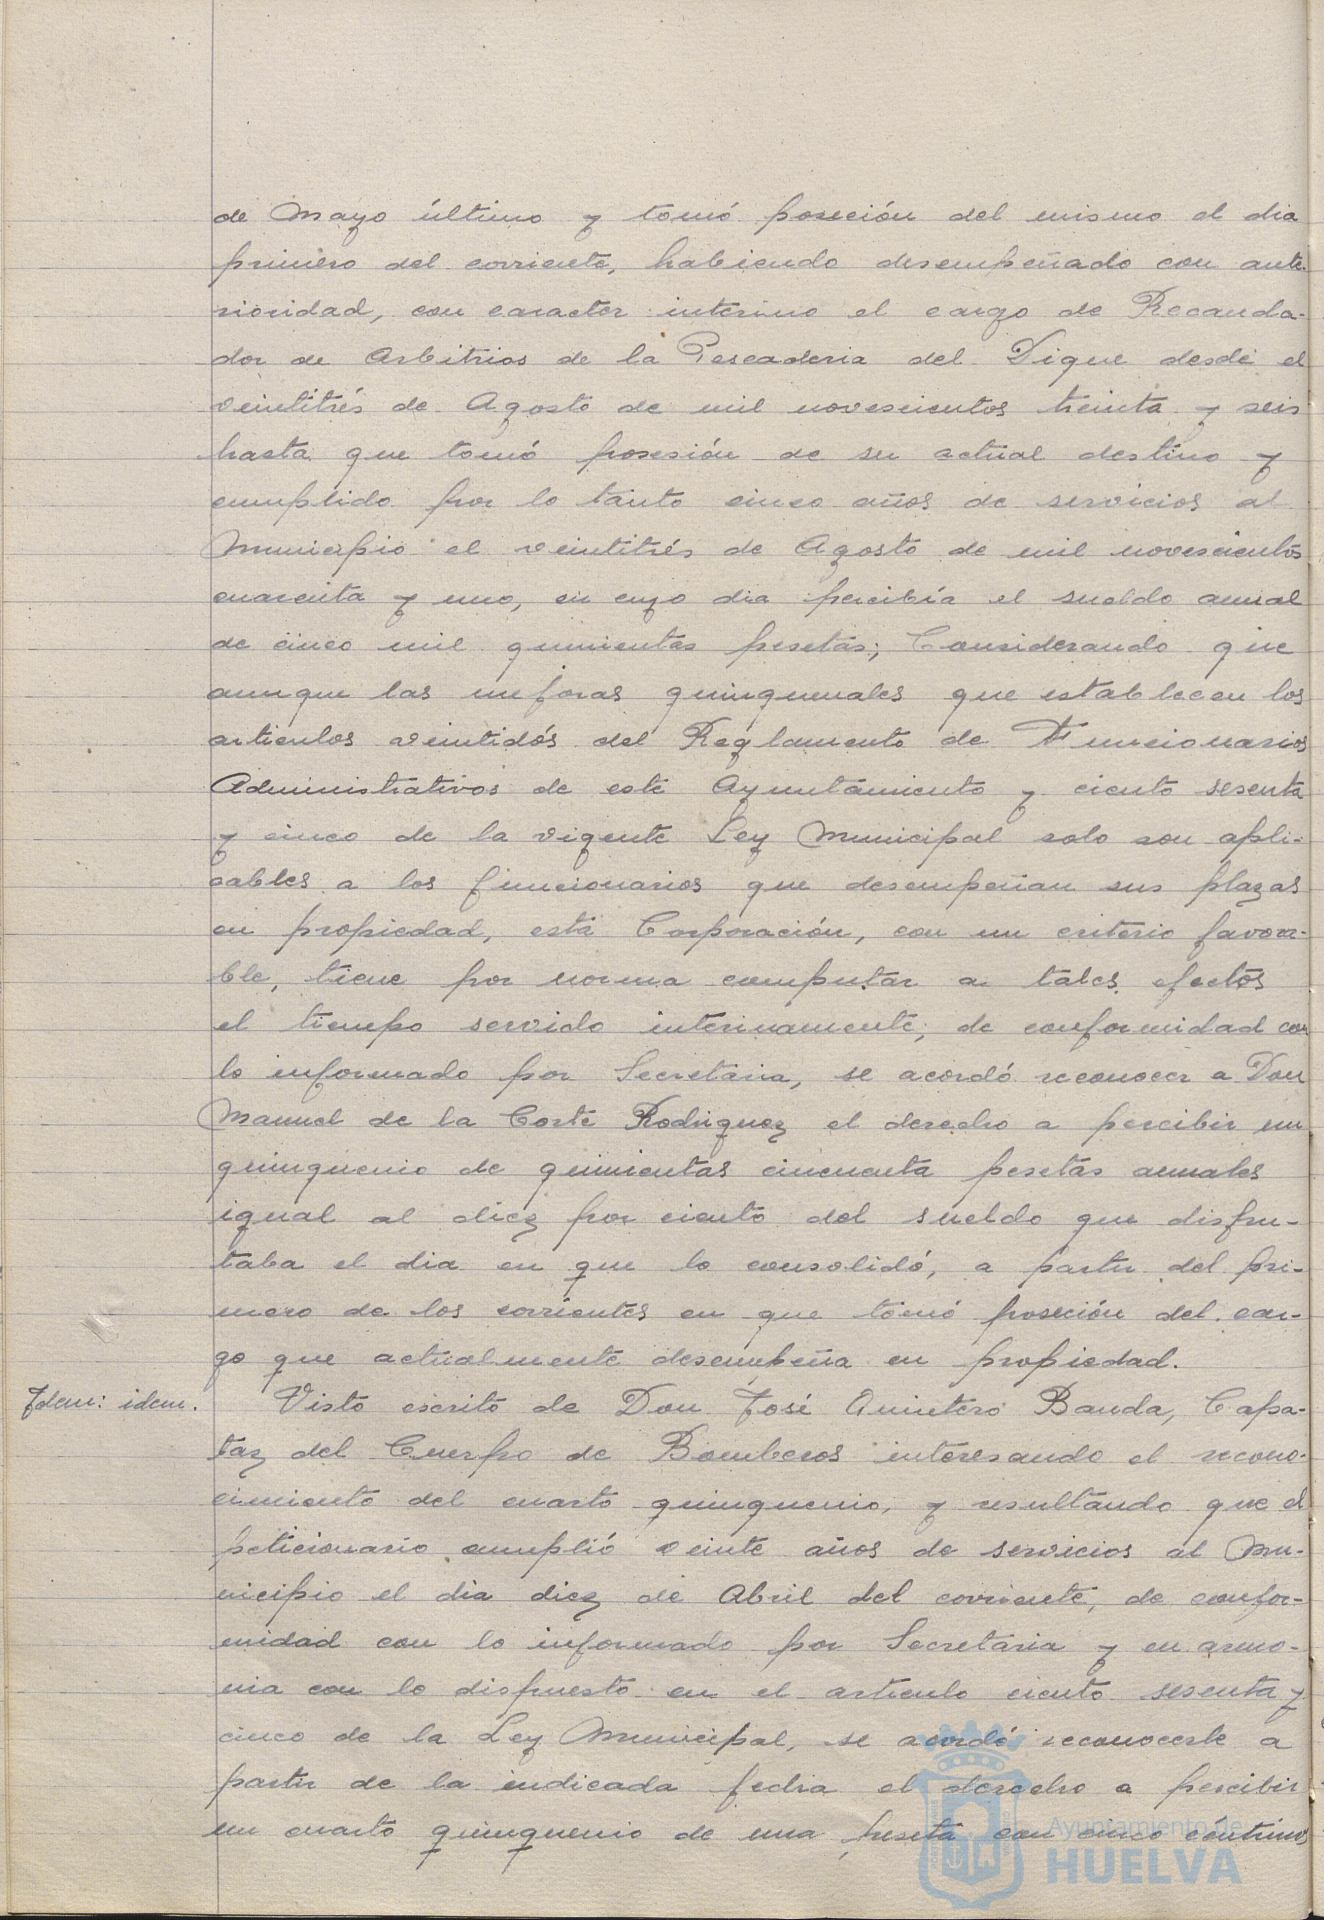 de Mayo último y tomó poseción del mismo el dia
primero del corriente, habiendo desempeñado con ante-
rioridad, con caracter interino el cargo de Recauda-
dor de Arbitrios de la Pescaderia del Dique desde el
veintitrés de Agosto de mil novescientos treinta y seis
hasta que tomó posesión de su actual destino y
cumplido por lo tanto cinco años de servicios al
Municipio el veintitrés de Agosto de mil novescientos
cuarenta y uno, en cuyo dia percibía el sueldo anual
de cinco mil quinientas pesetas; Considerando que
aunque las mejoras quinquenales que establecen los
articulos veintidós del Reglamento de Funcionarios
Administrativos de este Ayuntamiento y ciento sesenta
y cinco de la vigente Ley Municipal solo son apli-
cables a los funcionarios que desempeñan sus plazas
en propiedad, esta Corporación, con un criterio favora-
ble, tiene por norma computar a tales efectos
el tiempo servido interinamente; de conformidad con
lo informado por Secretaria, se acordó reconocer a Don
Manuel de la Corte Rodriguez el derecho a percibir un
quinquenio de quinientas cincuenta pesetas anuales
igual al diez por ciento del sueldo que disfru-
taba el dia en que lo consolidó, a partir del pri-
mero de los corrientes en que tomó poseción del car-
go que actualmente desempeña en propiedad.
Idem: idem. Visto escrito de Don José Quintero Banda, Capa-
taz del Cuerpo de Bomberos interesando el recono-
cimiento del cuarto quinquenio, y resultando que el
peticionario cumplió veinte años de servicios al Mu-
nicipio el dia diez de Abril del corriente, de confor-
midad con lo informado por Secretaria y en armo-
nia con lo dispuesto en el articulo ciento sesenta y
cinco de la Ley Municipal, se acordó reconocerle a
partir de la indicada fecha el derecho a percibir
un cuarto quinquenio de una peseta con cinco centimos
Ayuntamiento de
HUELVA